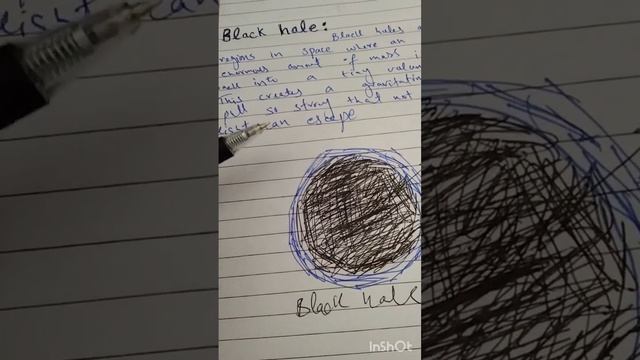 Black hale:
Black hales a
regions in space where an
enormous amount of mass i
into a tiny volum
This creates a gravitation
pull so strong that not
light can escape
Black hale
InShOt
light can